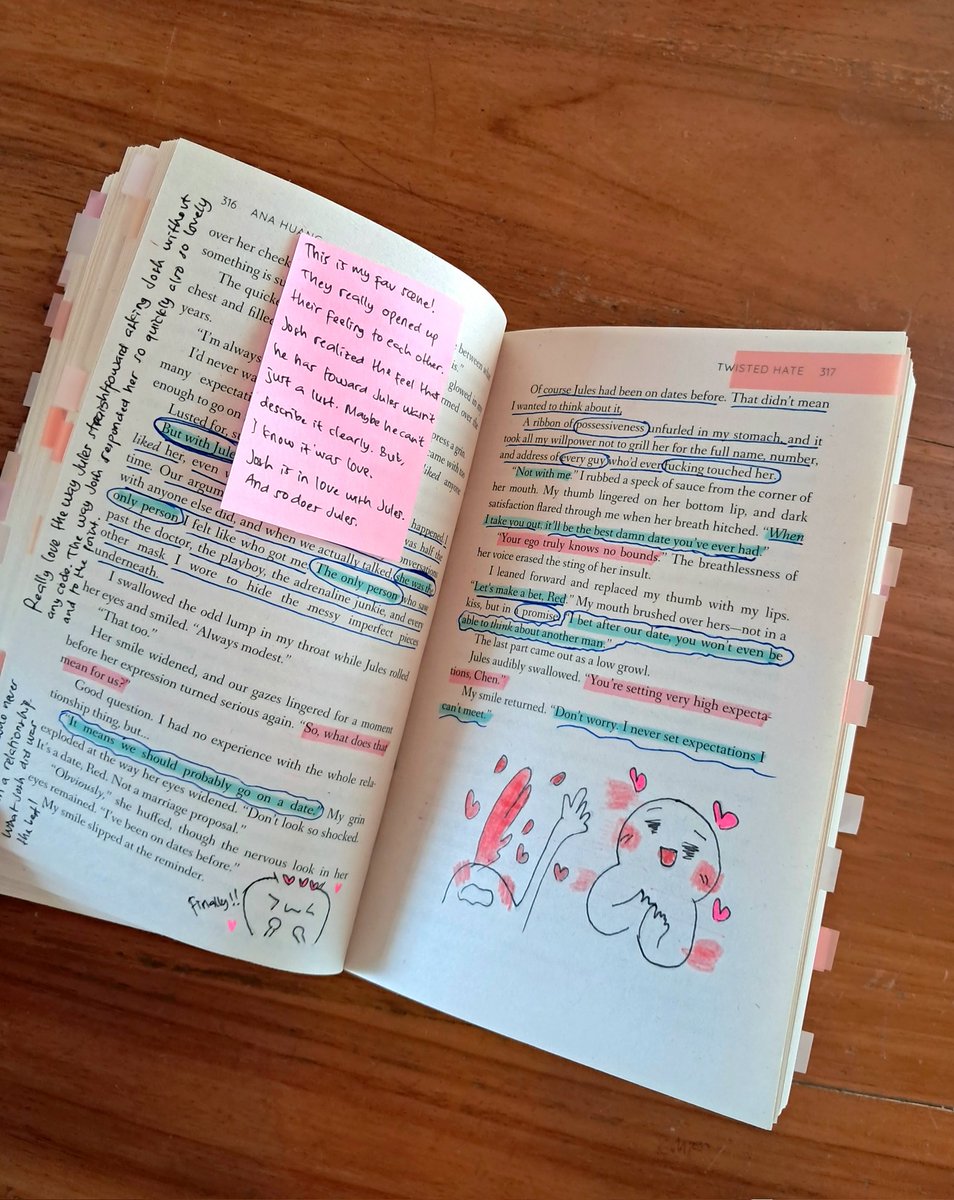 316 ANA HUANG
over her cheek
something is su
The quicke
chest and filled
years.
"I'm always
I'd never wa
many expectati
enough to go on
Lusted for, s
But with Jule
liked her, even
time. Our argum
with anyone else did, and when we actually talked, she was the
only person I felt like who got me. The only person who saw
past the doctor, the playboy, the adrenaline junkie, and every
other mask I wore to hide the messy imperfect pieces
underneath.
I swallowed the odd lump in my throat while Jules rolled
her eyes and smiled. "Always modest."
"That too."
Her smile widened, and our gazes lingered for a moment
before her expression turned serious again. "So, what does that
mean for us?"
Good question. I had no experience with the whole rela-
tionship thing, but...
"It means we should probably go on a date." My grin
exploded at the way her eyes widened. "Don't look so shocked.
It's a date, Red. Not a marriage proposal."
"Obviously," she huffed, though the nervous look in her
eyes remained. "I've been on dates before."
My smile slipped at the reminder.
between
glowed
press a grin.
came with
liked anyone
happened I
was half the
conversations
This is my fav scene!
They really opened up
their feeling to each other.
Josh realized the feel that
he has toward Jules wasn't
just a lust. Maybe he can't
describe it clearly. But,
I know it was love.
Josh is in love with Jules.
And so does Jules.
Really love the way Jules straightfoward asking Josh without
any code. The way Josh responded her so quickly also so lovely
and to the point.
who never
in a relationship.
What Josh did was
the best!
Finally!!
TWISTED HATE 317
Of course Jules had been on dates before. That didn't mean
I wanted to think about it.
A ribbon of possessiveness unfurled in my stomach, and it
took all my willpower not to grill her for the full name, number,
and address of every guy who'd ever fucking touched her.
"Not with me." I rubbed a speck of sauce from the corner of
her mouth. My thumb lingered on her bottom lip, and dark
satisfaction flared through me when her breath hitched. "When
I take you out, it'll be the best damn date you've ever had."
"Your ego truly knows no bounds." The breathlessness of
her voice erased the sting of her insult.
I leaned forward and replaced my thumb with my lips.
"Let's make a bet, Red." My mouth brushed over hers—not in a
kiss, but in promise. "I bet after our date, you won't even be
able to think about another man."
The last part came out as a low growl.
Jules audibly swallowed. "You're setting very high expecta-
tions, Chen."
My smile returned. "Don't worry. I never set expectations I
can't meet."